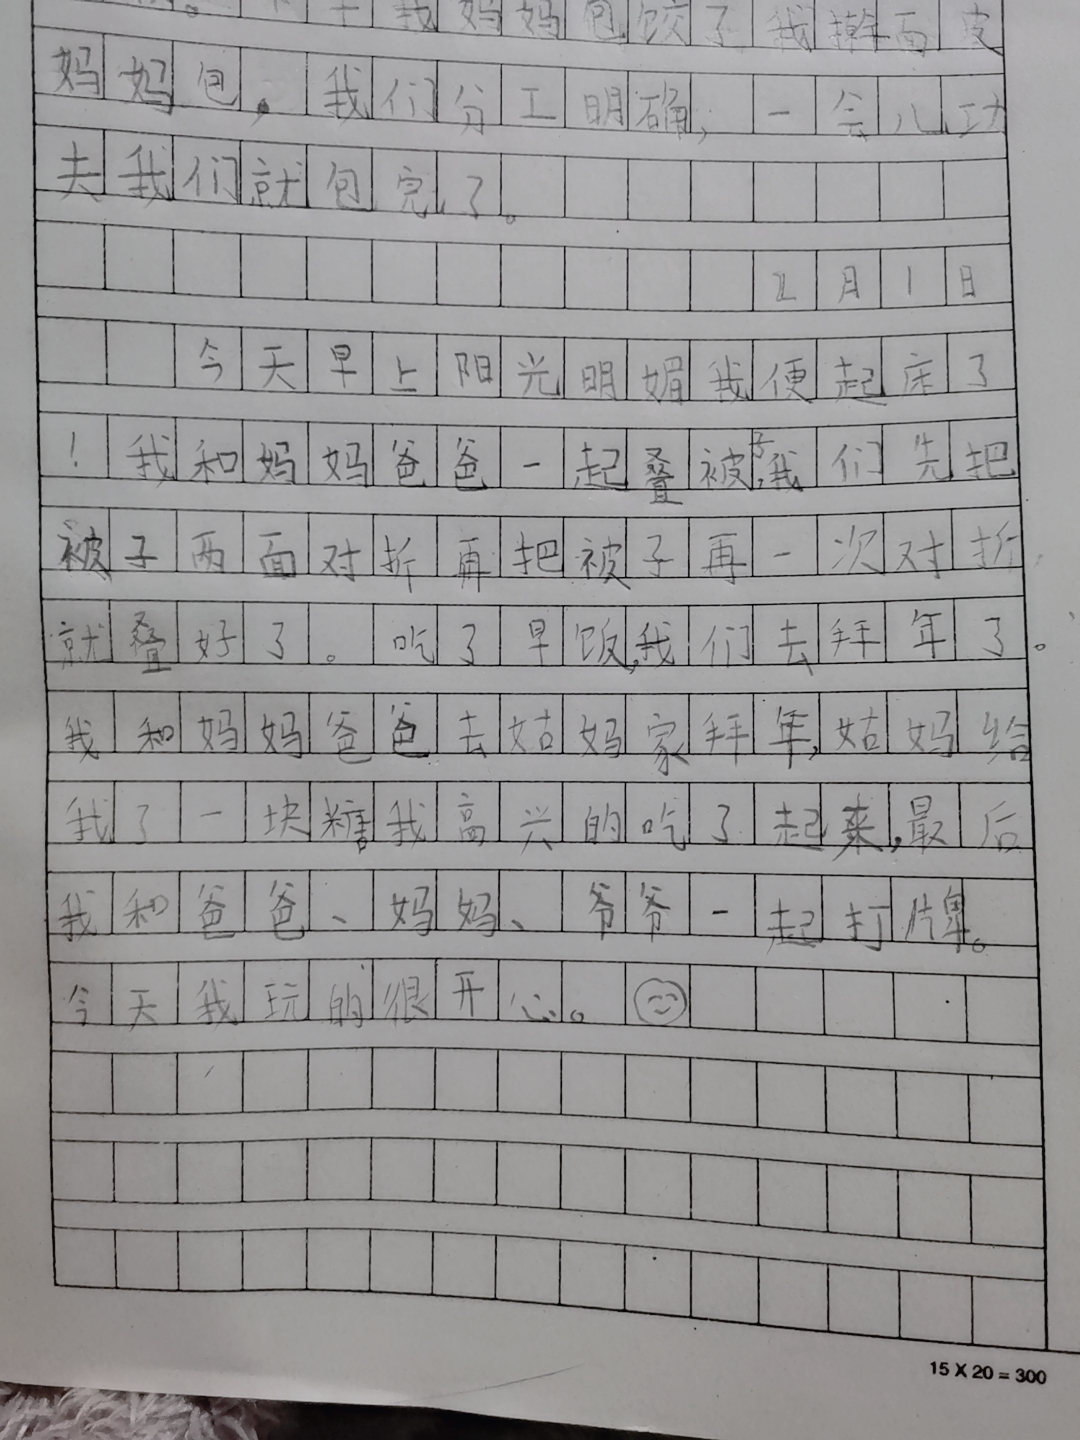 我妈妈包饺子我擀面皮
妈妈包，我们分工明确，一会儿功
夫我们就包完了。
2月1日
今天早上阳光明媚我便起床了
！我和妈妈爸爸一起叠被子，我们先把
被子两面对折再把被子再一次对折
就叠好了。吃了早饭，我们去拜年了。
我和妈妈爸爸去姑妈家拜年，姑妈给
我了一块糖我高兴的吃了起来，最后
我和爸爸、妈妈、爷爷一起打牌。
今天我玩的很开心。
15 X 20 = 300